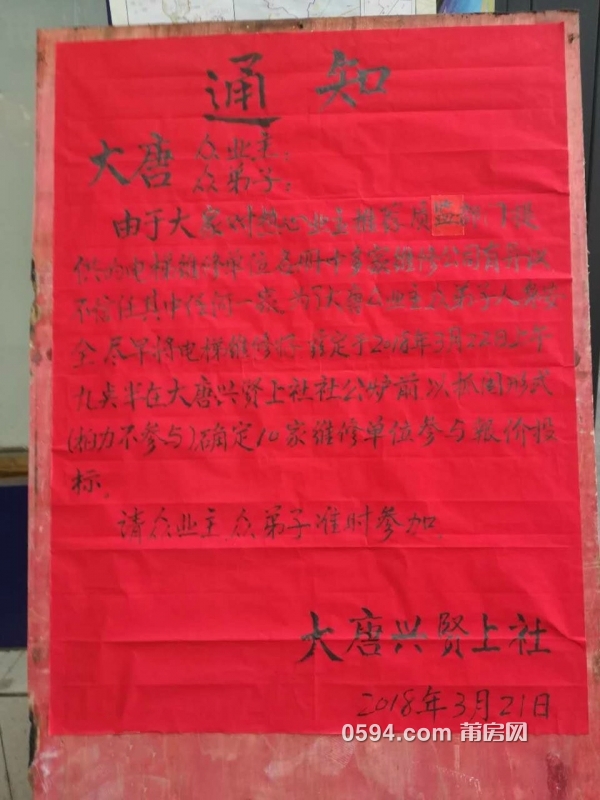 通知
大唐 众业主:
众弟子:
由于大家对热心业主推荐质监部门提
供的电梯维修单位名册中多家维修公司有异议
不信任其中任何一家.为了大唐众业主众弟子人身安
全.尽早将电梯维修好.兹定于2018年3月22日上午
九点半在大唐兴贤上社社公炉前以抓阄形式
(柏力不参与)确定10家维修单位参与报价投
标.
请众业主.众弟子准时参加.
大唐兴贤上社
2018年3月21日
0594.com 莆房网